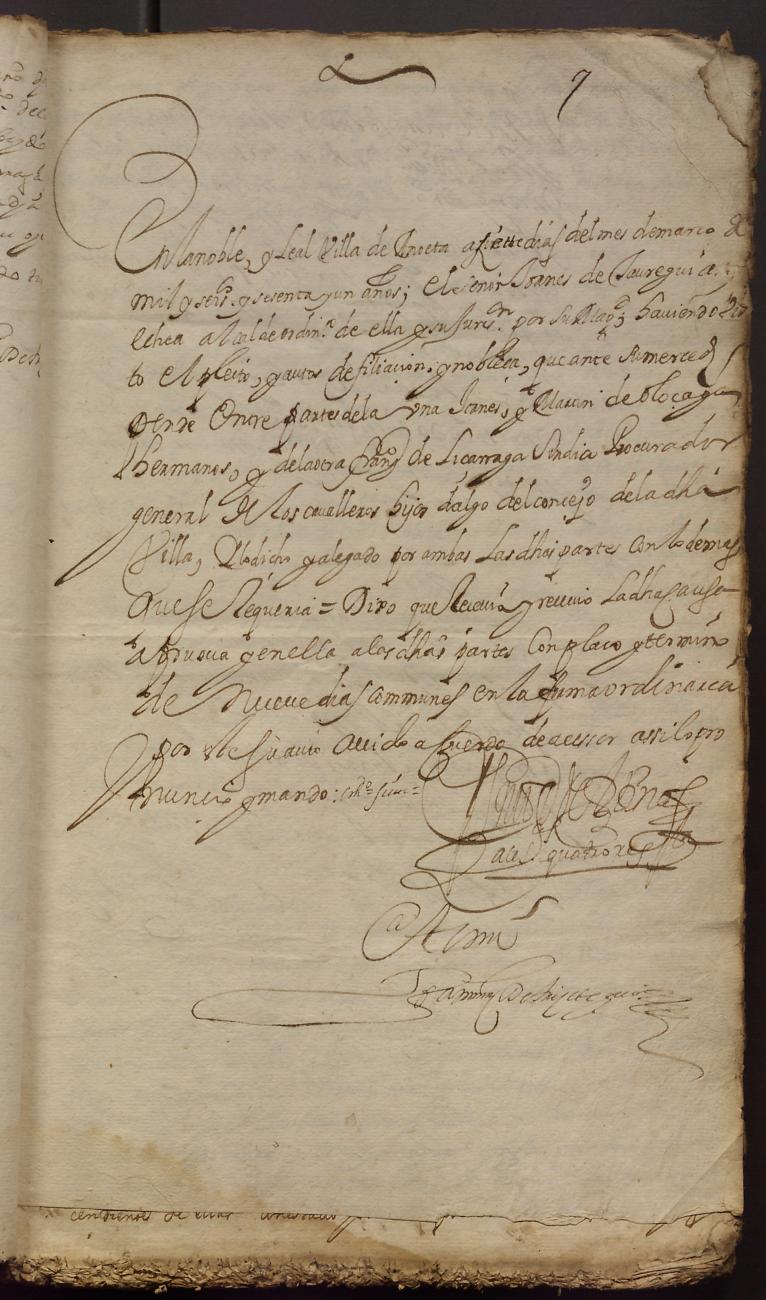 9
En la noble, y Leal Villa de a siette dias del mes de março de
mil y seisos. y sesenta y un años; el senor Joanes de Jauregui
echea alcalde ordin.o de ella y su Juresn. por su Magd; haviendo vis
to el pleito, y autos de filiacion, y nobleça, que ante su merced
pende Entre partes de la una Joanes, y Martin de oloçaga
hermanos, y de la otra franco de Liçarraga Sindico Procurador
general de los cavalleros hijos dalgo del concejo de la dha
Villa, y lo dicho y alegado por ambas Las dhas partes con lo demas
que se Requeria = Dixo que Recevia y recevio La dha causa
a prueva y en ella a las dhas partes Con plaço y termino
de Nueve dias communes en la forma ordinaria
por este su auto avido acuerdo de acessor assi lo pro
nuncio y mando:
Ante mi
cendientes de ellas